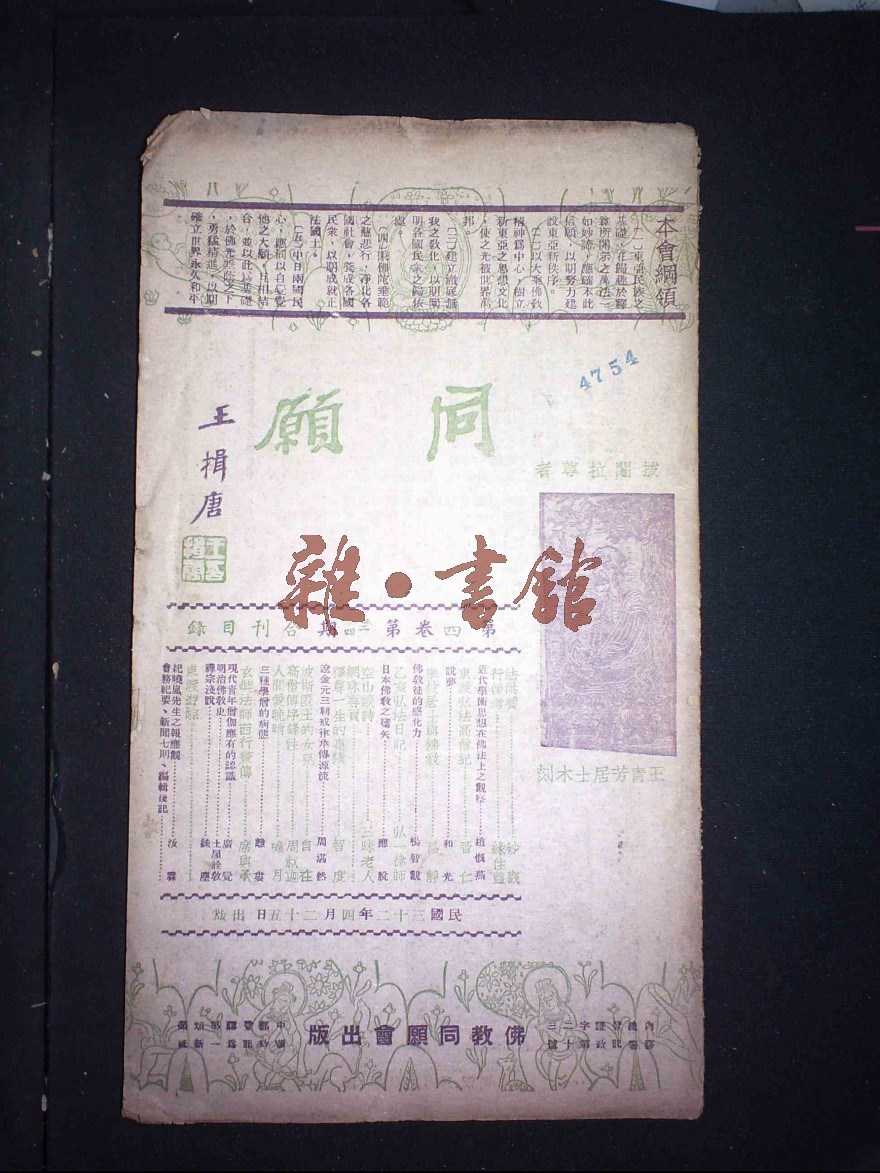 本會綱領
(一)東亞民族之
基礎,在歸趣於釋
尊所開示之萬法一
如妙諦,應確本此
信願,以期努力建
設東亞新秩序。
(二)以大乘佛教
精神爲中心,樹立
新東亞之思想文化
,使之光被世界萬
邦。
(三)建立徹底無
我之敎化,以期闡
明各國民衆之歸依
處。
(四)宗佛陀垂範
之慈悲行,淨化各
國社會,養成各國
民衆,以期成就正
法國土。
(五)中日兩國民
心,應同以自覺覺
他之大願,互相結
合,並以此爲基礎
,於佛光無際之下
,勇猛精進,以期
確立世界永久和平
。
4754
同願
王揖唐
拔闍拉尊者
王青芳居士木刻
雜·書館
第四卷第三四期合刊目錄
法供養 妙觀
行禪者 蘇佳麓
近代學術思想在佛法上之觀察 趙慨燕
東渡弘法高僧記 晉仁
說夢 和光
東坡居士與佛教 昌靜
佛教徒的感化力 楊智觀
乙亥弘法日記 弘一律師
日本佛敎之嚆矢 應脫
空山談詩 三昧老人
釋尊一生的事蹟 智度
遼金元三朝戒律承傳源流 周滿然
波斯匿王的女兒 自在
高僧傳序錄注 周叔迦
人間愛晚晴 曉月
三種學僧的病態
玄奘法師西行新傳 席與承
現代青年僧伽應有的認識 廣覺
明治佛教史 土屋詮敎
禪宗淺說 鐵塵
紀曉嵐先生之報應觀 汝霖
會務紀要、新聞七則、編輯後記
民國三十二年四月二十五日出版
內務總署登記證政字第二十三號
佛教同願會出版
中華郵政登記認爲第一類新聞紙